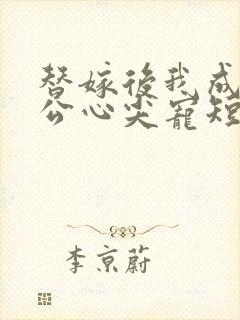 替嫁後我成
公心尖寵短
李京蔚